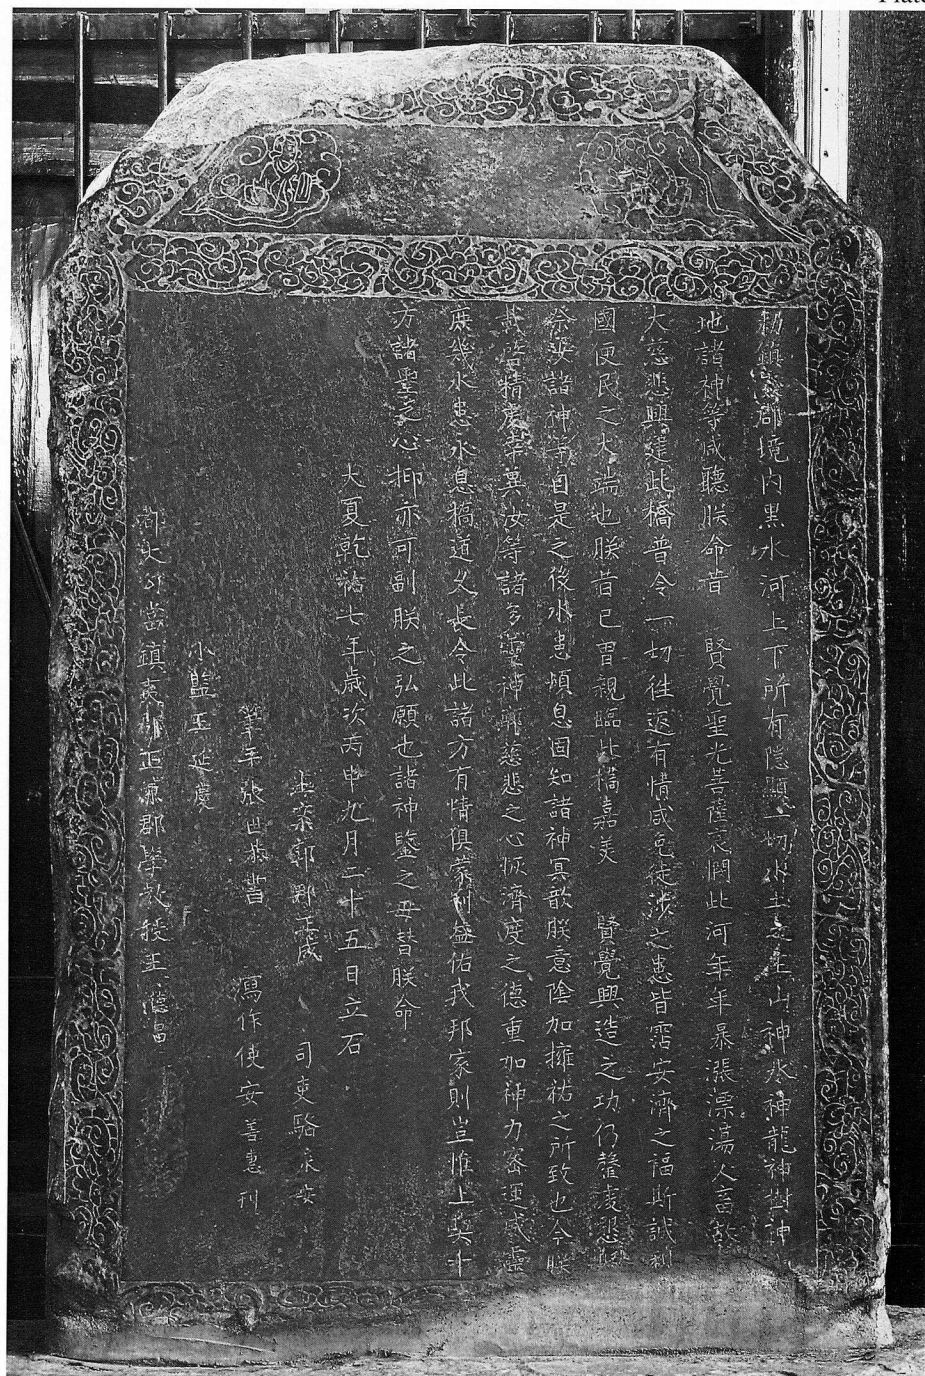 Plate
勑鎮夷郡境内黑水河上下所有隱顯一切水土之主山神水神龍神樹神
地諸神等咸聽朕命昔 賢覺聖光菩薩哀閔此河年年暴漲漂蕩人畜故
大慈悲興建此橋普令一切徃返有情咸免徒涉之患皆霑安濟之福斯誠利
國便民之大端也朕昔已曾親臨此橋嘉美 賢覺興造之功仍罄虔懇
祭汝諸神等自是之後水患頓息固知諸神冥歆朕意陰加擁祐之所致也今朕
載啓精虔幸冀汝等諸多靈神廓慈悲之心恢濟度之德重加神力密運威靈
庶幾水患永息橋道久長令此諸方有情俱蒙利益佑我邦家則豈惟上契十
方諸聖之心抑亦可副朕之弘願也諸神鑒之毋替朕命
大夏乾祐七年歲次丙申九月二十五日立石
主案郭那正成 司吏駱永安
筆手張世恭書 瀉作使安善惠刊
小監王延慶
都大勾當鎮夷郡正兼郡學教授王德昌